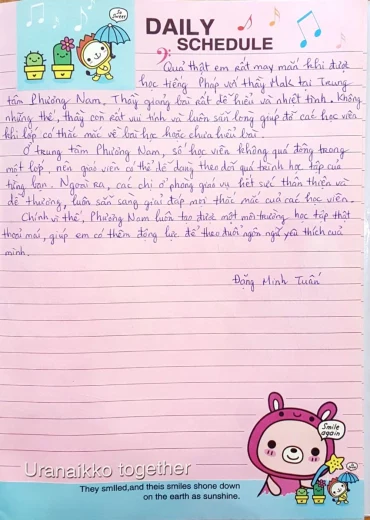 So Sweet
DAILY
SCHEDULE
Quả thật em rất may mắn khi được
học tiếng Pháp với thầy Mak tại Trung
tâm Phương Nam. Thầy giảng bài rất dễ hiểu và nhiệt tình. Không
những thế, thầy còn rất vui tính và luôn sẵn lòng giúp đỡ các học viên
khi lớp có thắc mắc về bài học hoặc chưa hiểu bài.
Ở trung tâm Phương Nam, số học viên không quá đông trong
một lớp, nên giáo viên có thể dễ dàng theo dõi quá trình học tập của
từng bạn. Ngoài ra, các chị ở phòng giáo vụ hết sức thân thiện và
dễ thương, luôn sẵn sàng giải đáp mọi thắc mắc của các học viên.
Chính vì thế, Phương Nam luôn tạo được một môi trường học tập thật
thoải mái, giúp em có thêm động lực để theo đuổi ngôn ngữ yêu thích của
mình.
Đặng Minh Tuấn
Smile
again
Uranaikko together
They smiled,and theis smiles shone down
on the earth as sunshine.